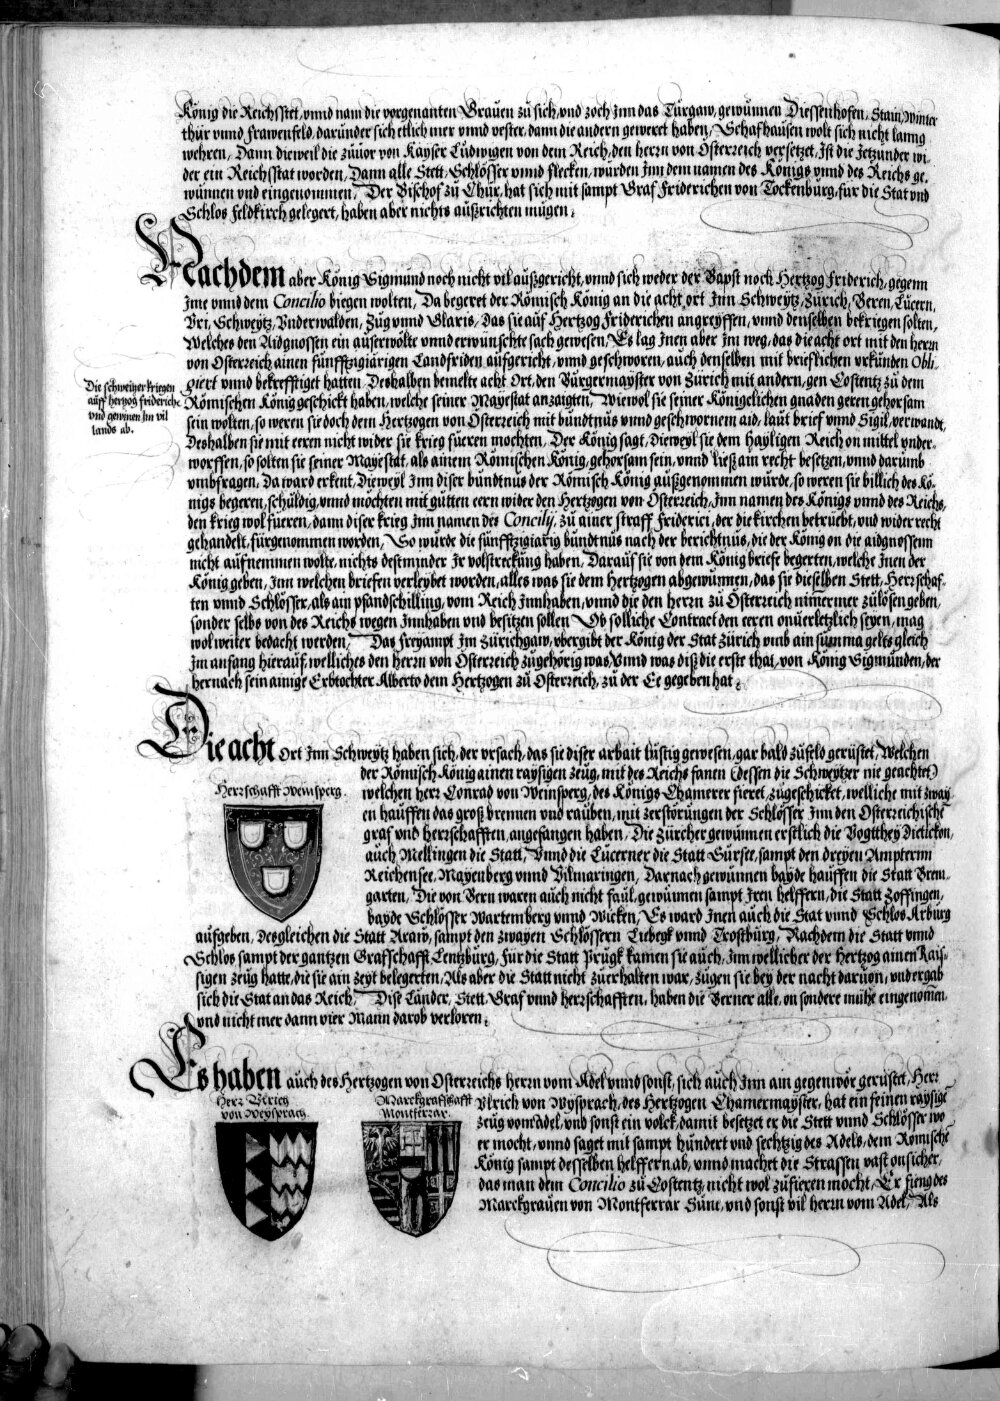 König die Reichsstet, vnnd nam die vorgenanten Grauen zů sich, vnd zoch Inn das Turgaw, gewunnen Diessenhofen, Stain, Winter
thür vnnd Frawenfeld, darunder sich etlich mer vnnd vester, dann die andern geweret haben, Schafhausen wolt sich nicht lanng
wehren, Dann dieweil die zuuor von Kayser Ludwigen von dem Reich, den herrn von Osterreich versetzet, Ist die Jetzunder wi-
der ein Reichsstat worden, Dann alle Stett, Schlösser vnnd flecken, wurden Inn dem namen des Königs vnnd des Reichs ge-
wunnen vnd eingenommen, Der Bischof zu Chur, hat sich mit sampt Graf Friderichen von Tockenburg, für die Stat vnd
Schlos Feldkirch gelegert, haben aber nichts außrichten mügen.
Nachdem aber König Sigmund noch nicht vil außgericht, vnnd sich weder der Bapst noch Hertzog Friderich, gegenn
Ime vnnd dem Concilio biegen wolten, Da begeret der Römisch König an die acht ort Inn Schweytz, Zürich, Beren, Lucern,
Vri, Schweytz, Vnderwalden, Zug vnnd Glaris, das sie auf Hertzog Friderichen angreyffen, vnnd denselben bekriegen solten,
Welches den Aidgnossen ein auserwölte vnnd erwünschte sach gewesen, Es lag Inen aber Im weg, das die acht ort mit den herrn
von Osterreich ainen fünfftzigiärigen Landfriden aufgericht, vnnd geschworen, auch denselben mit brieflichen vrkunden Obli-
giert vnnd bekrefftiget hatten, Deshalben bemelte acht Ort, den Burgermayster von Zürich mit andern, gen Costentz zu dem
Die schweitzer kriegen
auff hertzog friderich
vnd gewinen Im vil
lands ab.
Römischen König geschickt haben, welche seiner Mayestat anzaigten, Wiewol sie seiner Königelichen gnaden geren gehorsam
sein wolten, so weren sie doch dem Hertzogen von Osterreich mit bundtnus vnnd geschwornem aid, laut brief vnnd Sigil, verwandt,
Deshalben sie mit eeren nicht wider sie krieg füeren mochten, Der König sagt, Dieweyl sie dem hayligen Reich on mittel vnder-
worffen, so solten sie seiner Mayestat, als ainem Römischen König, gehorsam sein, vnnd ließ ain recht besetzen, vnnd darumb
vmbfragen, Da ward erkent, Dieweyl Inn diser bundtnus der Römisch König außgenommen wurde, so weren sie billich des Kö-
nigs begeren, schuldig, vnnd möchten mit gutten eern wider den Hertzogen von Osterreich, Inn namen des Königs vnnd des Reichs,
den krieg wol füeren, dann diser krieg Inn namen des Concilij, zu ainer straff Friderici, der die kirchen betruebt, vnd wider recht
gehandelt, fürgenommen worden, So wurde die fünfftzigiärig bundtnus nach der berichtnus, die der König on die aidgnossenn
nicht aufnemmen wolte, nichts destminder Ir volstreckung haben, Darauf sie von dem König briefe begerten, welche Inen der
König geben, Inn welchen briefen verleybet worden, alles was sie dem Hertzogen abgewunnen, das sie dieselben Stett, Herrschaf-
ten vnnd Schlösser, als ain pfandschilling, vom Reich Innhaben, vnnd die den herrn zu Osterreich nimermer zulösen geben,
sonder selbs von des Reichs wegen Innhaben vnd besitzen sollen, Ob solliche Contract den eeren onuerletzlich seyen, mag
wol weiter bedacht werden, Das Freyampt Im Zürichgaw, vbergibt der König der Stat Zürich vmb ain summa gelts gleich
Im anfang hierauf, welliches den herrn von Osterreich zugehörig was, Vnnd was diß die erste that, von König Sigmunden, der
hernach sein ainige Erbtochter Alberto dem Hertzogen zu Osterreich, zu der Ee gegeben hat.
Die acht Ort Inn Schweytz haben sich, der vrsach, das sie diser arbait lustig gewesen, gar bald zufeld gerüstet, Welchen
der Römisch König ainen raysigen zeug, mit des Reichs fanen (dessen die Schweytzer nie geachtet)
Herrschafft Weinsperg.
welchen herr Conrad von Weinsperg, des Königs Chamerer fieret, zugeschicket, welliche mit zway-
en hauffen das groß brennen vnd rauben, mit zerstörungen der Schlösser Inn den Osterreichische
graf vnd herrschafften, angefangen haben, Die Zürcher gewunnen erstlich die Vogtthey Dietickon,
auch Mellingen die Statt, Vnnd die Lucerner die Statt Sursee, sampt den dreyen Ampternn
Reichensee, Mayenberg vnnd Vilmaringen, Darnach gewunnen bayde hauffen die Statt Brem-
garten, Die von Bern waren auch nicht faul, gewunnen sampt Iren helffern, die Statt Zoffingen,
bayde Schlösser Wartemberg vnnd Wicken, Es ward Inen auch die Stat vnnd Schlos Arburg
aufgeben, desgleichen die Statt Araw, sampt den zwayen Schlössern Liebegk vnnd Trostburg, Nachdem die Statt vnnd
Schlos sampt der gantzen Grafschafft Lentzburg, für die Statt Prugk kamen sie auch, Inn wellicher der Hertzog ainen Ray-
sigen zeug hatte, die sie ain zeyt belegerten, Als aber die Statt nicht zuerhalten war, zugen sie bey der nacht daruon, vnd ergab
sich die Stat an das Reich, Dise Länder, Stett, Graf vnnd herrschafften, haben die Berner alle, on sondere mühe eingenomen,
vnd nicht mer dann vier Mann darob verloren.
Es haben auch des Hertzogen von Osterreichs herrn vom Adel vnnd sonst, sich auch Inn ain gegenwör gerüstet, Herr
Herr Vlrich
von Weysprach.
Marckgrafschafft
Montferrar.
Vlrich von Wysprach, des Hertzogen Chamermayster, hat ein feinen raysige
zeug vom Adel, vnd sonst ein volck, damit besetzet er die Stett vnnd Schlösser wo
er mocht, vnnd saget mit sampt hundert vnd sechtzig des Adels, dem Römische
König sampt desselben helffern ab, vnnd machet die Strassen vast onsicher,
das man dem Concilio zu Costentz nicht wol zufieren mocht, Er fieng des
Marckgrauen von Montferrar Sune, vnd sonst vil herrn vom Adel, Als